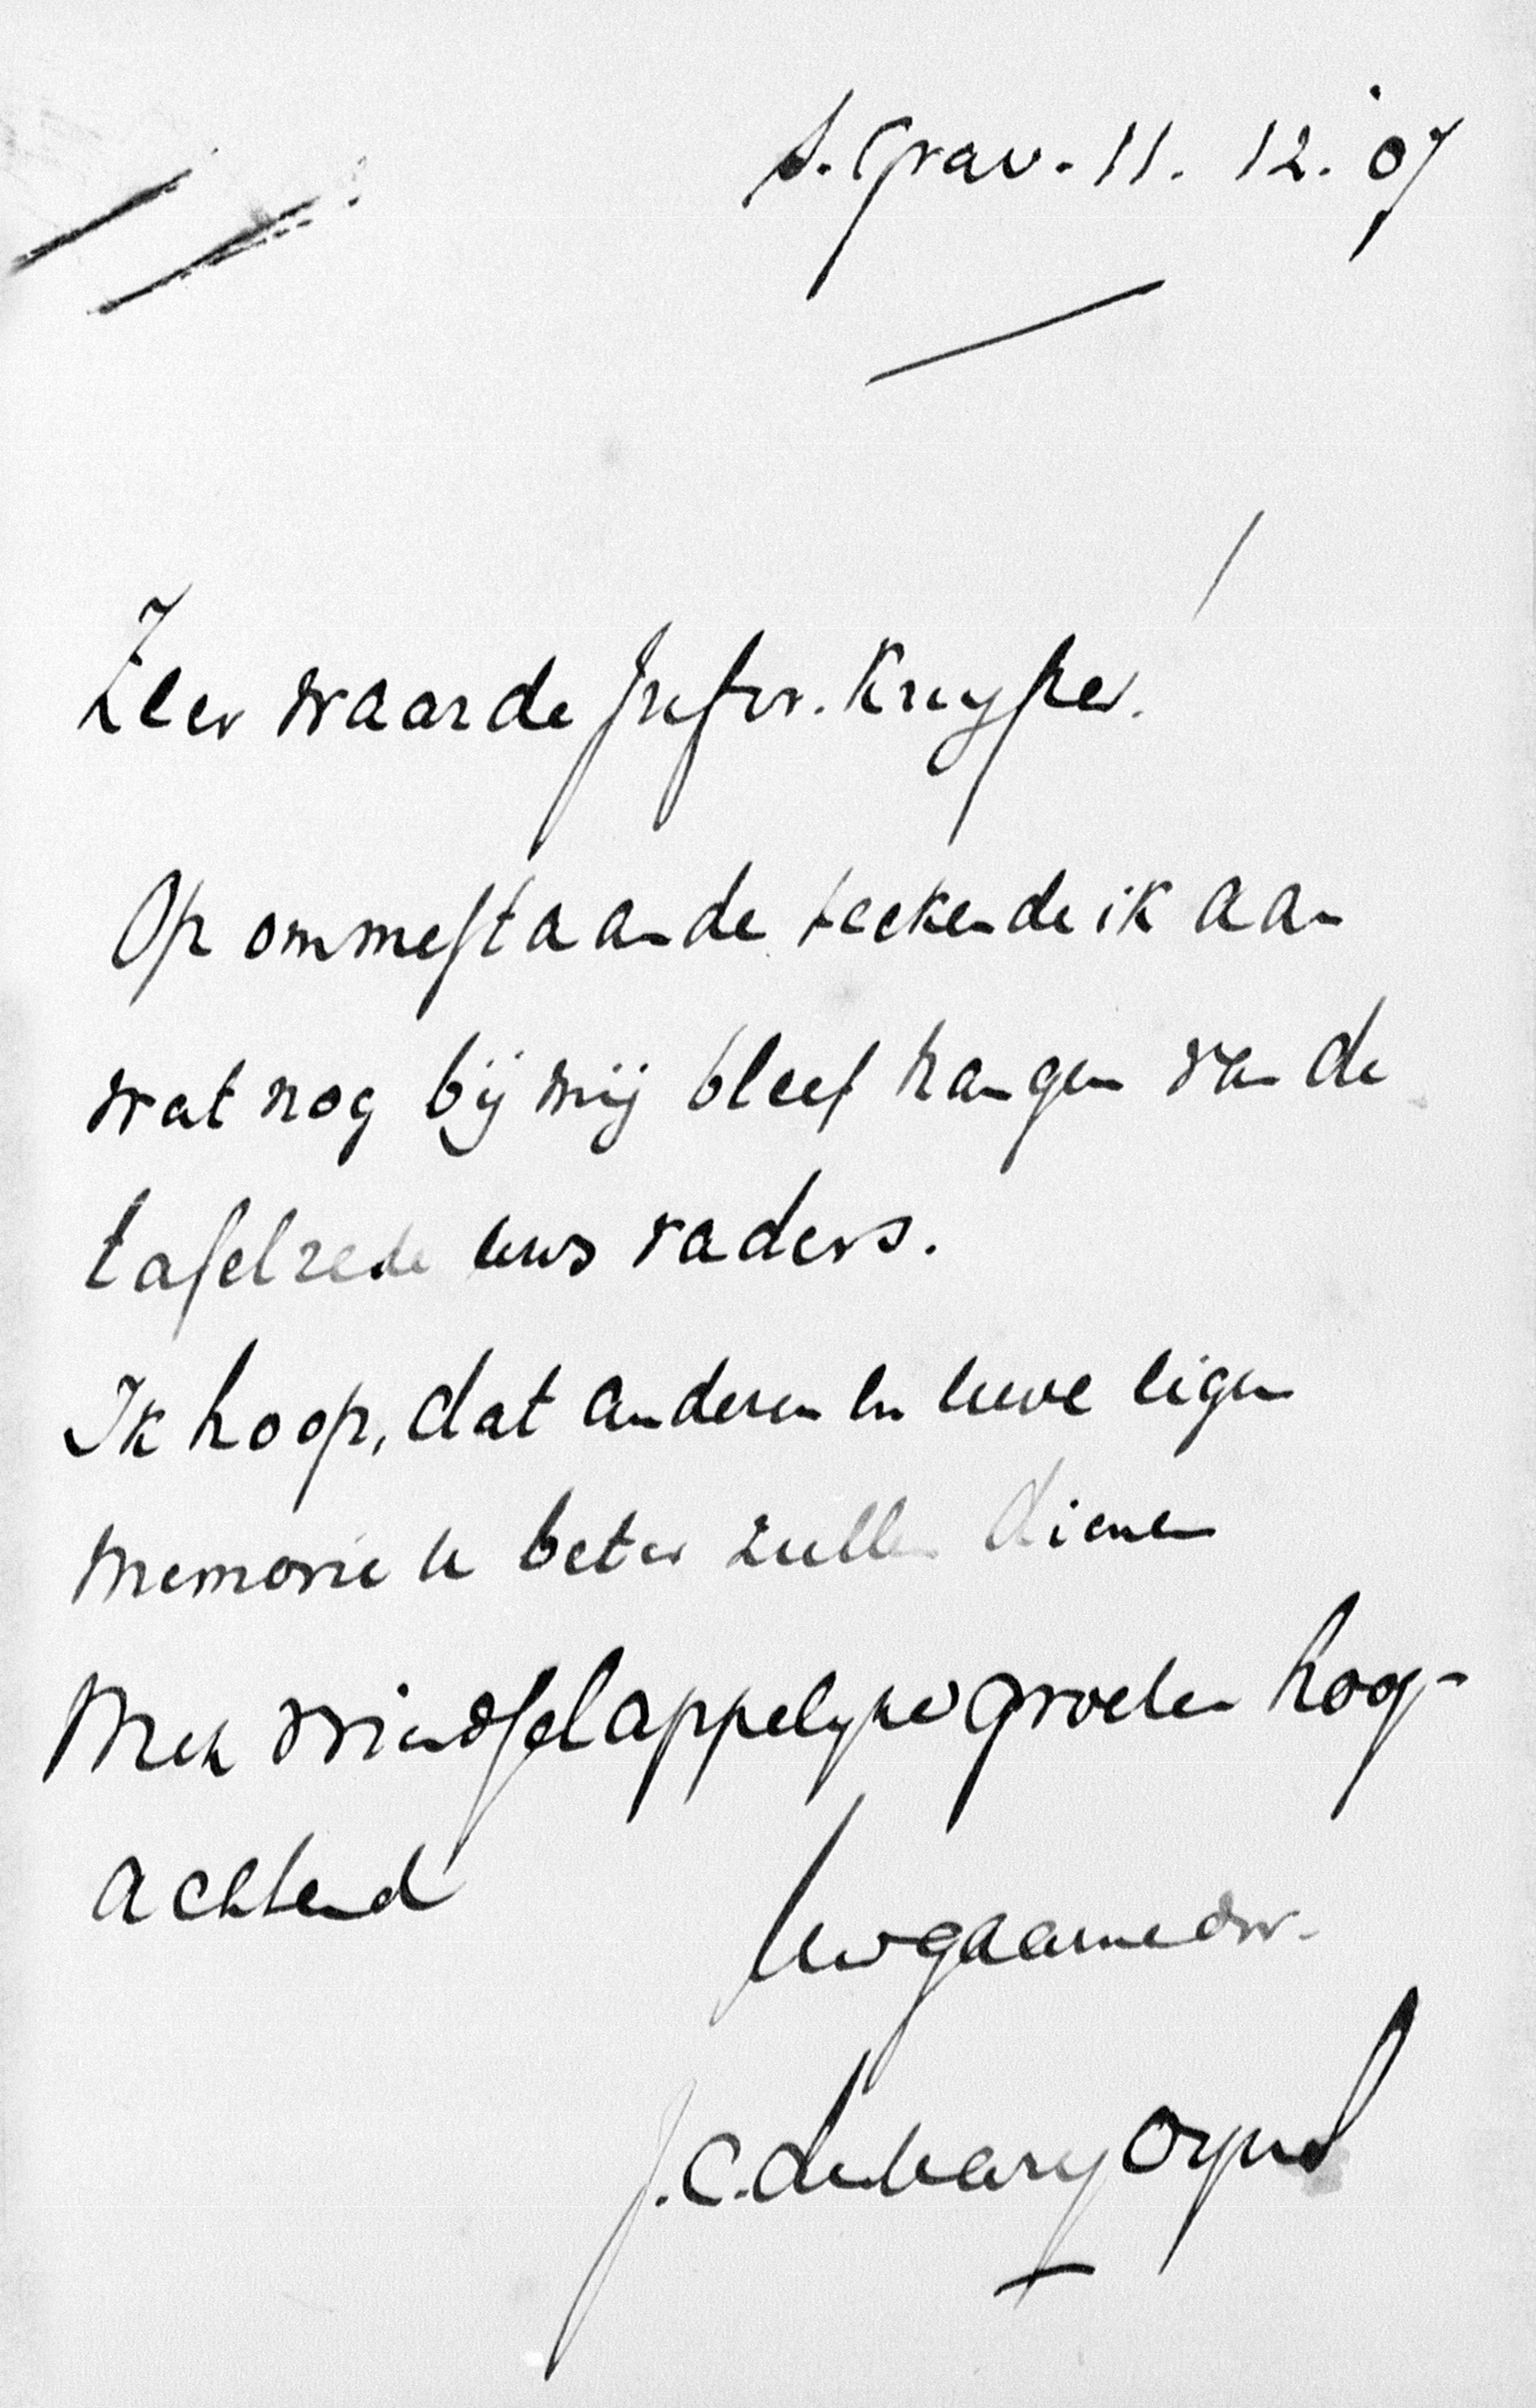 s. Grav. 11. 12. '07
Zeer waarde Jufvr. Kuyper!
Op ommestaande teekende ik aan
wat nog bij mij bleef hangen van de
tafelrede uws vaders.
Ik hoop, dat anderen en uwe eigen
memorie u beter zullen dienen
Met vriendschappelyke groeten hoog-
achtend
Uw gaarne dw.
J. C. de